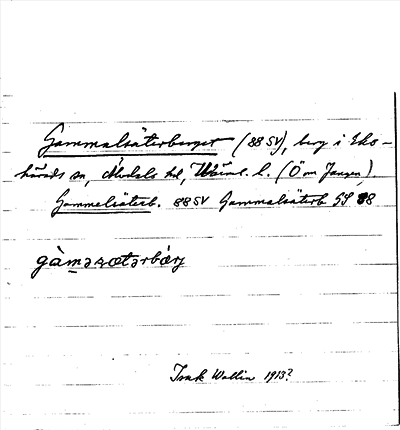 Gammalsäterberget (88 SV), berg i Eks-
härads sn, Älvdals hd, Värml. l. (Ö om Jangen)
Gammelsäterb. 88 SV Gammalsäterb. GS 88
gàmasætərbærj
Isak Wallin 1913?